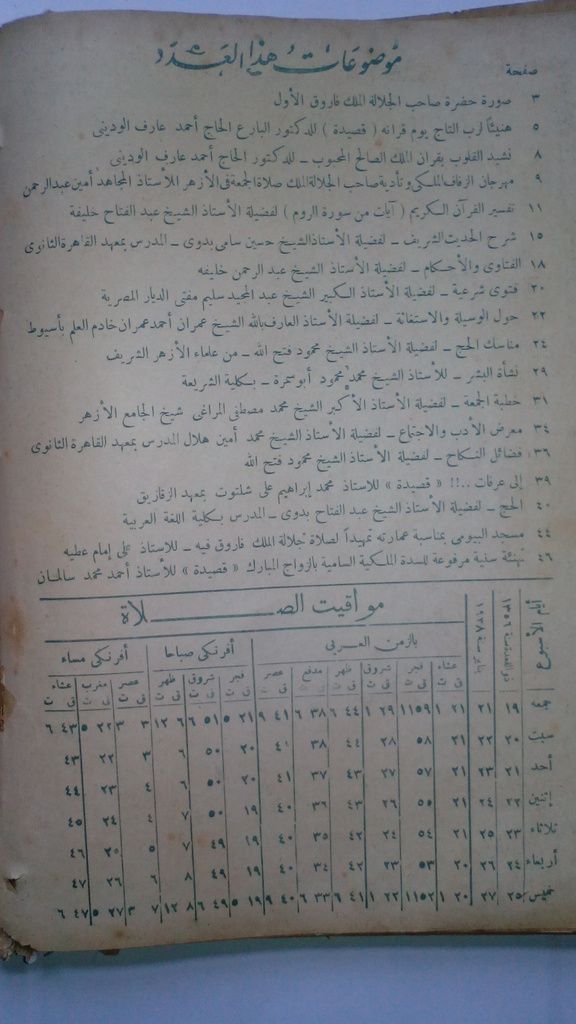 موضوعات هذا العدد
صفحة
٣ صورة حضرة صاحب الجلالة الملك فاروق الأول
٥ هنيئا لرب التاج يوم قرانه ( قصيدة ) للدكتور البارع الحاج أحمد عارف الودينى
٨ نشيد القلوب بقران الملك الصالح المحبوب ــ للدكتور الحاج أحمد عارف الودينى
٩ مهرجان الزفاف الملكى وتأدية صاحب الجلالة الملك صلاة الجمعة فى الأزهر للأستاذ المجاهد أمين عبد الرحمن
١١ تفسير القرآن الكريم ( آيات من سورة الروم ) لفضيلة الأستاذ الشيخ عبد الفتاح خليفة
١٥ شرح الحديث الشريف ــ لفضيلة الأستاذ الشيخ حسين سامى بدوى ــ المدرس بمعهد القاهرة الثانوى
١٨ الفتاوى والأحكام ــ لفضيلة الأستاذ الشيخ عبد الرحمن خليفه
٢٠ فتوى شرعية ــ لفضيلة الأستاذ الكبير الشيخ عبد المجيد سليم مفتى الديار المصرية
٢٢ حول الوسيلة والاستغاثة ــ لفضيلة الأستاذ العارف بالله الشيخ عمران أحمد عمران خادم العلم بأسيوط
٢٤ مناسك الحج ــ لفضيلة الأستاذ الشيخ محمود فتح الله ــ من علماء الأزهر الشريف
٢٩ نشأة البشر ــ للأستاذ الشيخ محمد محمود أبو سمرة ــ بكلية الشريعة
٣١ خطبة الجمعة ــ لفضيلة الأستاذ الأكبر الشيخ محمد مصطفى المراغى شيخ الجامع الأزهر
٣٤ معرض الأدب والاجتماع ــ لفضيلة الأستاذ الشيخ محمد أمين هلال المدرس بمعهد القاهرة الثانوى
٣٦ فضائل النكاح ــ لفضيلة الأستاذ الشيخ محمود فتح الله
٣٩ إلى عرفات ..!! « قصيدة » للاستاذ محمد إبراهيم على شلتوت بمعهد الزقازيق
٤٠ الحج ــ لفضيلة الأستاذ الشيخ عبد الفتاح بدوى ــ المدرس بكلية اللغة العربية
٤٤ مسجد البيومى بمناسبة عمارته تمهيداً لصلاة جلالة الملك فاروق فيه ــ للاستاذ على إمام عطيه
٤٦ تهنئة سنية مرفوعة للسدة الملكية السامية بالزواج المبارك « قصيدة » للأستاذ أحمد محمد سالمان
مواقيت الصلاة
أيام الأسبوع ذو القعدة سنة ١٣٥٦ يناير سنة ١٩٣٨ بالزمن العربى أفرنكى صباحا أفرنكى مساء
عشاء فجر شروق ظهر مدفع عصر فجر شروق ظهر عصر مغرب عشاء
ق ت ق ت ق ت ق ت ق ت ق ت ق ت ق ت ق ت ق ت ق ت ق ت
جمعه ١٩ ٢١ ٢١ ١ ٥٩ ١١ ٢٩ ١ ٤٤ ٦ ٣٨ ٦ ٤١ ٩ ٢١ ٥ ٥١ ٦ ٦ ١٢ ٣ ٣ ٢٢ ٥ ٤٣ ٦
سبت ٢٠ ٢٢ ٢١ ٥٨ ٢٨ ٤٤ ٣٨ ٤١ ٢٠ ٥٠ ٦ ٣ ٢٢ ٤٣
أحد ٢١ ٢٣ ٢١ ٥٧ ٢٧ ٤٣ ٣٧ ٤١ ٢٠ ٥٠ ٦ ٤ ٢٣ ٤٤
إتنين ٢٢ ٢٤ ٢١ ٥٥ ٢٦ ٤٣ ٣٦ ٤٠ ١٩ ٥٠ ٧ ٤ ٢٤ ٤٥
ثلاثاء ٢٣ ٢٥ ٢١ ٥٤ ٢٤ ٤٢ ٣٥ ٤٠ ١٩ ٤٩ ٧ ٥ ٢٥ ٤٦
أربعاء ٢٤ ٢٦ ٢٠ ٥٣ ٢٣ ٤٢ ٣٤ ٤٠ ١٩ ٤٩ ٨ ٦ ٢٦ ٤٧
خميس ٢٥ ٢٧ ٢٠ ١ ٥٢ ١١ ٢٢ ١ ٤١ ٦ ٣٣ ٦ ٤٠ ٩ ١٩ ٥ ٤٩ ٦ ٨ ١٢ ٧ ٣ ٢٧ ٥ ٤٧ ٦